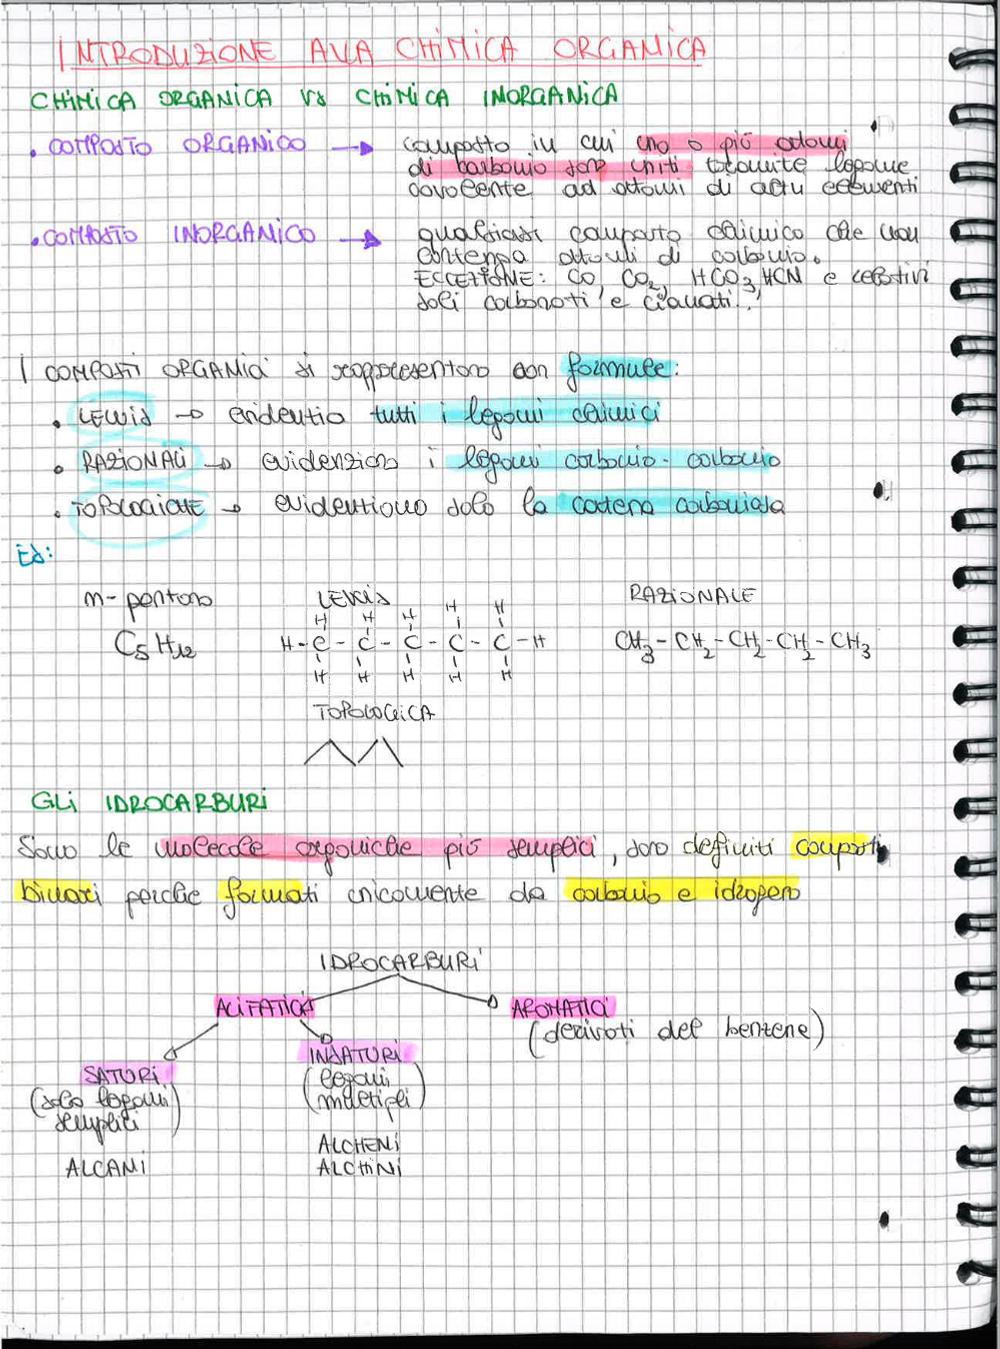 INTRODUZIONE ALLA CHIMICA ORGANICA
CHIMICA ORGANICA VS CHIMICA INORGANICA
• COMPOSTO ORGANICO → composto in cui uno o più atomi
di carbonio sono uniti tramite legame
covalente ad atomi di altri elementi
• COMPOSTO INORGANICO → qualsiasi composto chimico che non
contenga atomi di carbonio.
ECCEZIONE: CO, CO2, HCO3, HCN e relativi
soli carbonati e cianati.
I COMPOSTI ORGANICI si rappresentano con formule:
• LEWIS → evidenzia tutti i legami chimici
• RAZIONALI → evidenziano i legami carbonio-carbonio
• TOPOLOGICHE → evidenziano solo la catena carboniosa
Es:
n-pentano LEWIS RAZIONALE
H H H H H
C5H12 H-C-C-C-C-C-H CH3-CH2-CH2-CH2-CH3
H H H H H
TOPOLOGICA
GLI IDROCARBURI
Sono le molecole organiche più semplici, sono definiti composti
binari perche formati unicamente da carbonio e idrogeno
IDROCARBURI
ALIFATICI AROMATICI
(derivati del benzene)
SATURI INSATURI
(solo legami semplici) (legami multipli)
ALCHENI
ALCANI ALCHINI